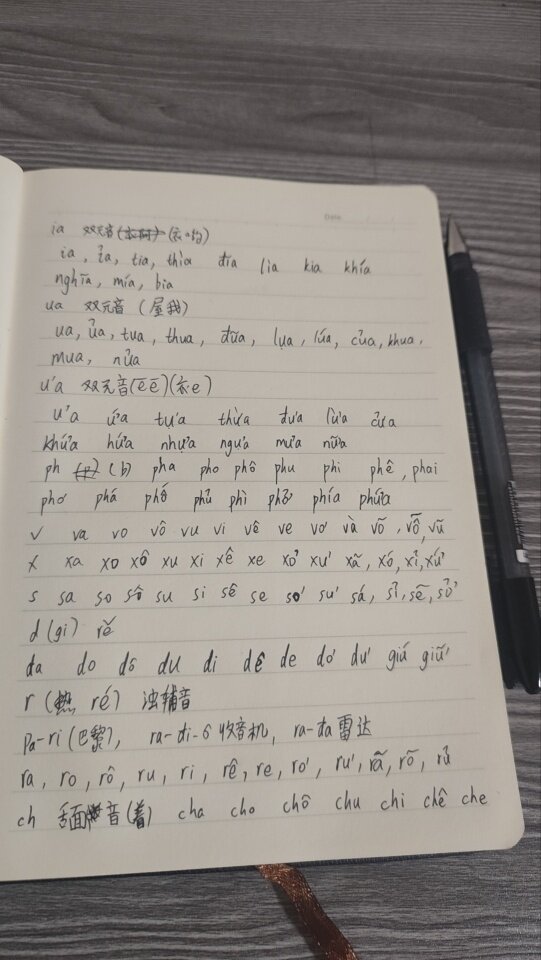 Date
ia 双元音 (衣一哟)
ia, ỉa, tia, thìa đĩa lìa kia khía
nghĩa, mía, bia
ua 双元音 (屋我)
ua, ủa, tua, thua, đũa, lụa, lúa, của, khua,
mua, nửa
ưa 双元音 (ēē) (衣e)
ưa ứa tựa thừa đưa lừa cửa
khứa hứa nhựa ngựa mưa nữa
ph (b) pha pho phô phu phi phê, phai
phơ phá phố phủ phì phở phía phứa
v va vo vô vu vi vê ve vơ và võ, vỗ, vũ
x xa xo xô xu xi xê xe xơ xư xã, xó, xỉ, xứ
s sa so sô su si sê se sơ sư sá, sỉ, sẽ, sở
d (gi) rě
da do dô du di dê de dơ dư giá giữ
r (热 ré) 浊辅音
Pa-ri (巴黎), ra-đi-ô 收音机, ra-đa 雷达
ra, ro, rô, ru, ri, rê, re, rơ, rư, rã, rõ, rủ
ch 舌面音 (着) cha cho chô chu chi chê che